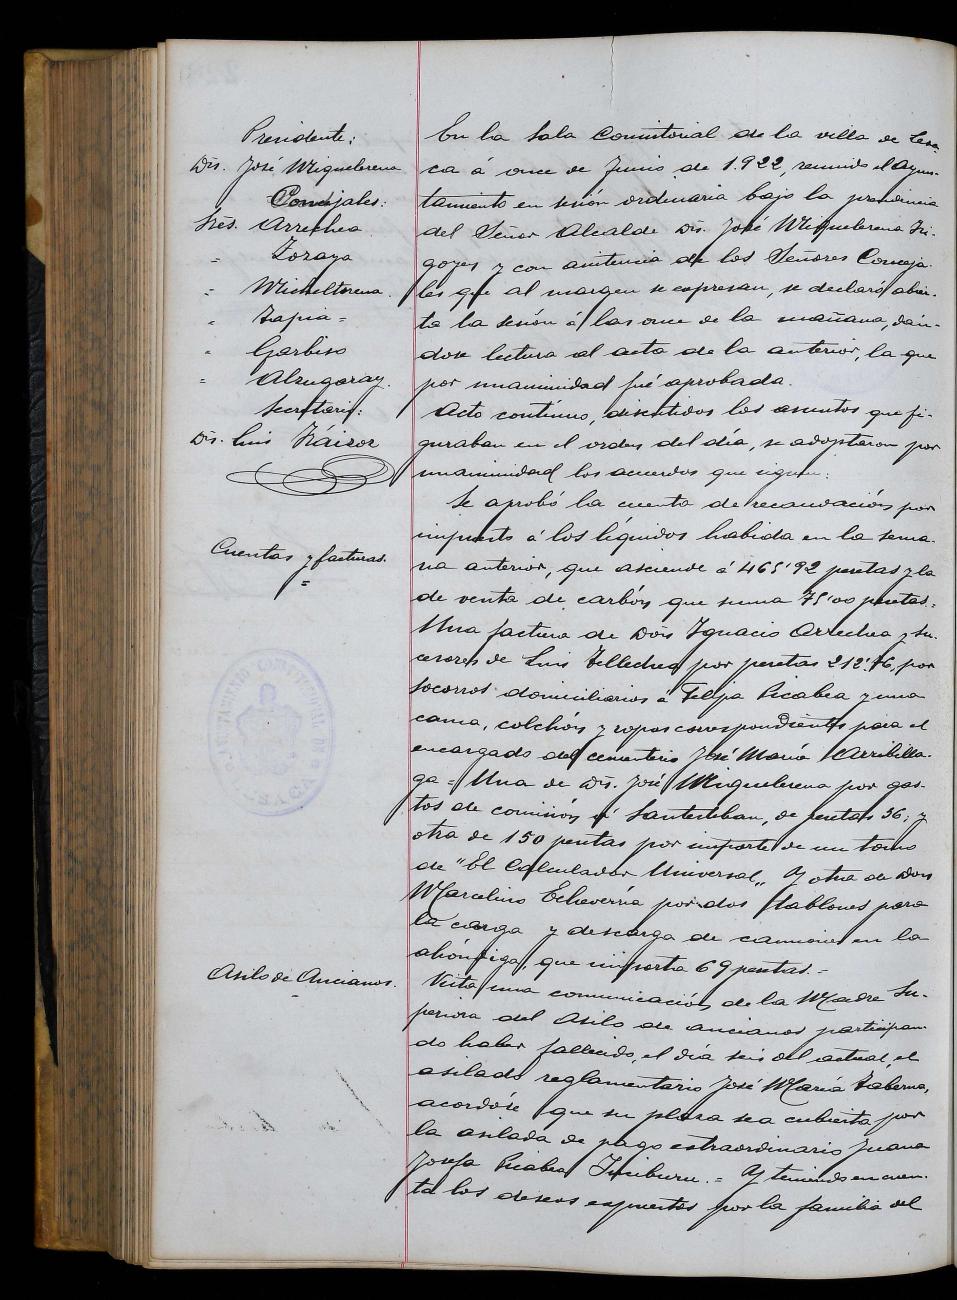 Presidente:
Dn. José Miguelerena
Concejales:
Sres. Arrechea
" Zoraya
" Micheltorena
" Tapia =
" Garbiso
" Alzugaray.
Secretario:
Dn. Luis
Cuentas y facturas.
=
AYUNTAMIENTO CONSTITUCIONAL DE
LESACA
Asilo de Ancianos.
-
En la Sala Consistorial de la villa de Lesa-
ca á once de Junio de 1.922, reunido el Ayun-
tamiento en sesión ordinaria bajo la presidencia
del Señor Alcalde Dn. José Miguelerena Iri-
goyen y con asistencia de los Señores Conceja-
les que al margen se expresan, se declaró abier-
ta la sesión á las once de la mañana, dán-
dose lectura al acta de la anterior, la que
por unanimidad fué aprobada.
Acto contínuo, discutidos los asuntos que fi-
guraban en el orden del día, se adoptaron por
unanimidad los acuerdos que siguen:
Se aprobó la cuenta de recaudación por
impuesto á los líquidos habida en la sema-
na anterior, que asciende á 465'92 pesetas y la
de venta de carbón que suma 75'00 pesetas.=
Una factura de Don Ignacio Arrechea y Su-
cesores de Luis Tellechea por pesetas 212'76, por
socorros domiciliarios á Felipa Picabea y una
cama, colchón y ropas correspondientes para el
encargado del cementerio José María Arribilla-
ga = Una de Dn. José Miguelerena por gas-
tos de comisión á Santesteban, de pesetas 36; y
otra de 150 pesetas por importe de un tomo
de "El Calculador Universal" Y otra de Don
Marcelino Echeverría por dos tablones para
la carga y descarga de camiones en la
alhóndiga, que importa 69 pesetas.=
Vista una comunicación de la Madre Su-
periora del Asilo de ancianos participan-
do haber fallecido, el día seis del actual, el
asilado reglamentario José María Taberna,
acordóse que su plaza sea cubierta por
la asilada de pago extraordinario Juana
Josefa Picabea . = Y teniendo en cuen-
ta los deseos expuestos por la familia del